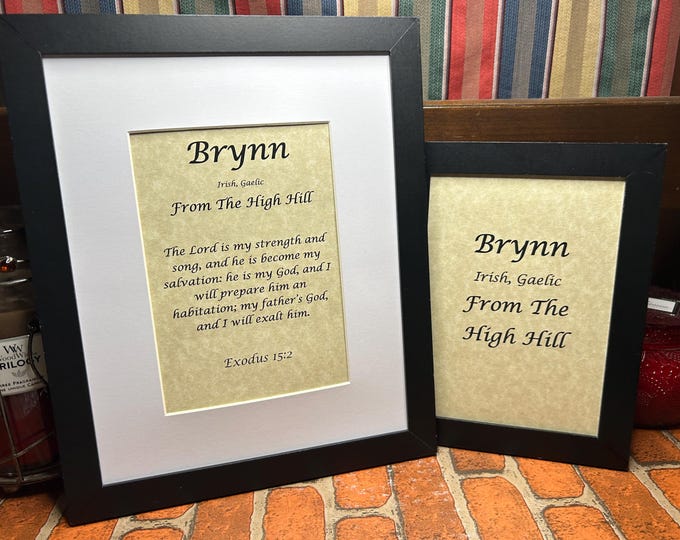 Brynn
Irish, Gaelic
From The High Hill
The Lord is my strength and
song, and he is become my
salvation: he is my God, and I
will prepare him an
habitation; my father's God,
and I will exalt him.
Exodus 15:2
Brynn
Irish, Gaelic
From The
High Hill
WW
TRILOGY